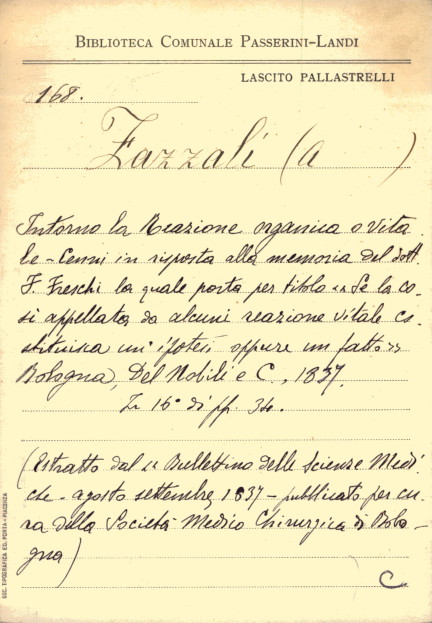 BIBLIOTECA COMUNALE PASSERINI-LANDI
LASCITO PALLASTRELLI
168.
Zazzali (a )
Intorno la Reazione organica o vita
le - Cenni in risposta alla memoria del dott.
F. Freschi la quale porta per titolo "Se la co-
sì appellata da alcuni reazione vitale co-
stituisca un' ipotesi oppure un fatto"
Bologna, Del Nobili e C., 1837.
In 16° di pp. 34.
(Estratto dal "Bullettino delle Scienze Medi
che - agosto settembre, 1837 - pubblicato per cu-
ra della Società Medico Chirurgica di Bolo-
gna)
C
SOC. TIPOGRAFICA ED. PORTA - PIACENZA